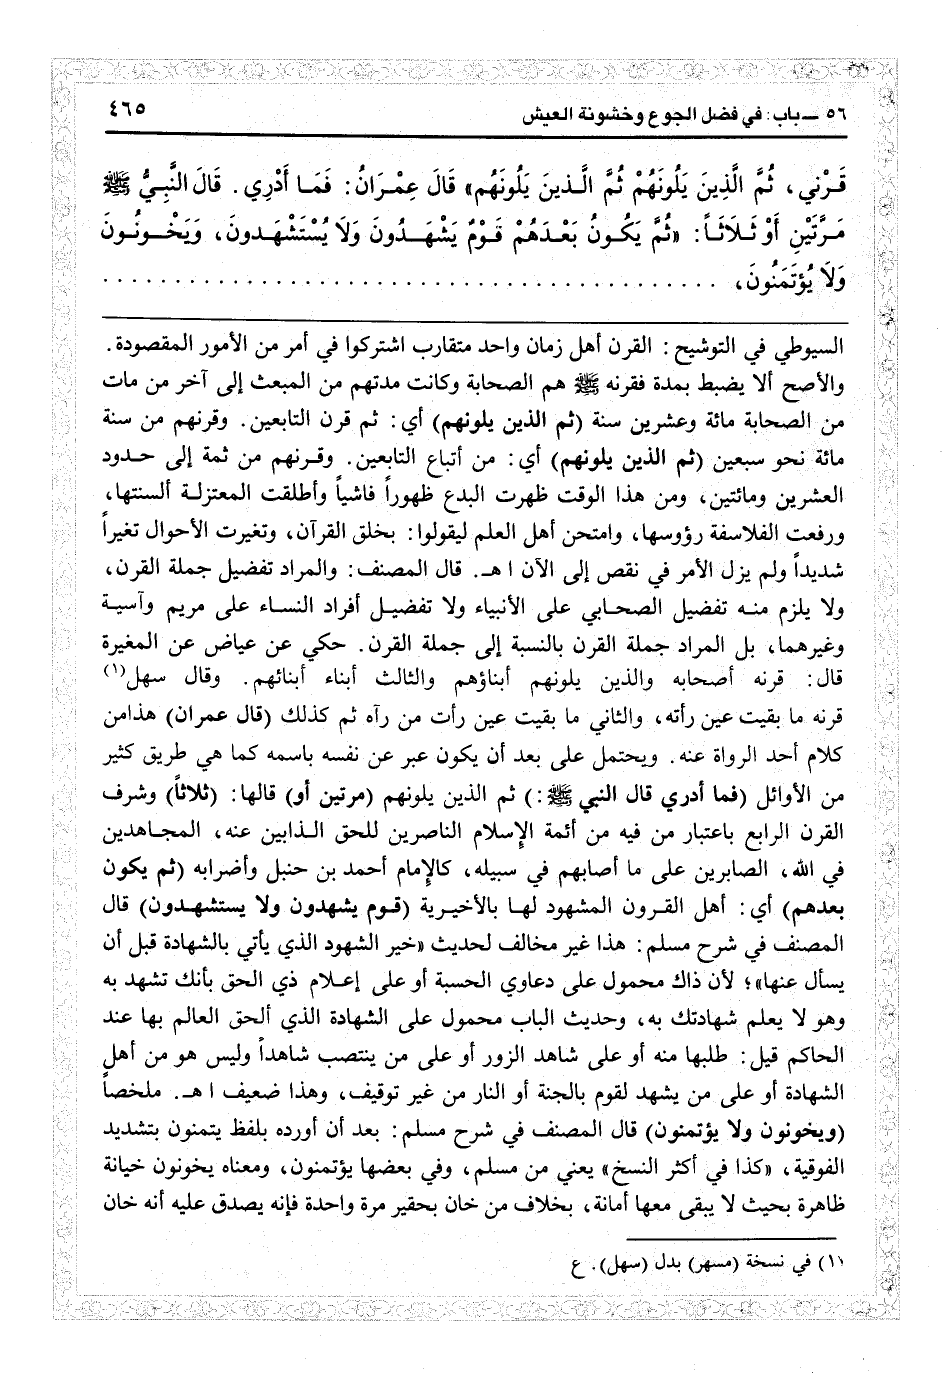 ٥٦ - باب: في فضل الجوع وخشونة العيش ٤٦٥
قَرْني، ثُمَّ الَّذِينَ يَلُونَهُمْ ثُمَّ الَّذينَ يَلُونَهُم» قَالَ عِمْرَانُ: فَمَا أَدْرِي. قَالَ النَّبِيُّ ﷺ
مَرَّتَيْنِ أَوْ ثَلَاثَاً: «ثُمَّ يَكُونُ بَعْدَهُمْ قَوْمٌ يَشْهَدُونَ وَلَا يُسْتَشْهَدونَ، وَيَخْونُونَ
وَلَا يُؤتَمَنُونَ، . . . . . . . . . . . . . . . . . . . . . . . . . . . . . . . . . . . . . . . .
السيوطي في التوشيح: القرن أهل زمان واحد متقارب اشتركوا في أمر من الأمور المقصودة.
والأصح ألا يضبط بمدة فقرنه ﷺ هم الصحابة وكانت مدتهم من المبعث إلى آخر من مات
من الصحابة مائة وعشرين سنة (ثم الذين يلونهم) أي: ثم قرن التابعين. وقرنهم من سنة
مائة نحو سبعين (ثم الذين يلونهم) أي: من أتباع التابعين. وقرنهم من ثمة إلى حدود
العشرين ومائتين، ومن هذا الوقت ظهرت البدع ظهوراً فاشياً وأطلقت المعتزلة ألسنتها،
ورفعت الفلاسفة رؤوسها، وامتحن أهل العلم ليقولوا: بخلق القرآن، وتغيرت الأحوال تغيراً
شديداً ولم يزل الأمر في نقص إلى الآن اهـ. قال المصنف: والمراد تفضيل جملة القرن،
ولا يلزم منه تفضيل الصحابي على الأنبياء ولا تفضيل أفراد النساء على مريم وآسية
وغيرهما، بل المراد جملة القرن بالنسبة إلى جملة القرن. حكي عن عياض عن المغيرة
قال: قرنه أصحابه والذين يلونهم أبناؤهم والثالث أبناء أبنائهم. وقال سهل(١)
قرنه ما بقيت عين رأته، والثاني ما بقيت عين رأت من رآه ثم كذلك (قال عمران) هذامن
كلام أحد الرواة عنه. ويحتمل على بعد أن يكون عبر عن نفسه باسمه كما هي طريق كثير
من الأوائل (فما أدري قال النبي ﷺ:) ثم الذين يلونهم (مرتين أو) قالها: (ثلاثاً) وشرف
القرن الرابع باعتبار من فيه من أئمة الإسلام الناصرين للحق الذابين عنه، المجاهدين
في الله، الصابرين على ما أصابهم في سبيله، كالإمام أحمد بن حنبل وأضرابه (ثم يكون
بعدهم) أي: أهل القرون المشهود لها بالأخيرية (قوم يشهدون ولا يستشهدون) قال
المصنف في شرح مسلم: هذا غير مخالف لحديث «خير الشهود الذي يأتي بالشهادة قبل أن
يسأل عنها»؛ لأن ذاك محمول على دعاوي الحسبة أو على إعلام ذي الحق بأنك تشهد به
وهو لا يعلم شهادتك به، وحديث الباب محمول على الشهادة الذي ألحق العالم بها عند
الحاكم قيل: طلبها منه أو على شاهد الزور أو على من ينتصب شاهداً وليس هو من أهل
الشهادة أو على من يشهد لقوم بالجنة أو النار من غير توقيف، وهذا ضعيف اهـ. ملخصاً
(ويخونون ولا يؤتمنون) قال المصنف في شرح مسلم: بعد أن أورده بلفظ يتمنون بتشديد
الفوقية، «كذا في أكثر النسخ» يعني من مسلم، وفي بعضها يؤتمنون، ومعناه يخونون خيانة
ظاهرة بحيث لا يبقى معها أمانة، بخلاف من خان بحقير مرة واحدة فإنه يصدق عليه أنه خان
(١) في نسخة (مسهر) بدل (سهل). ع